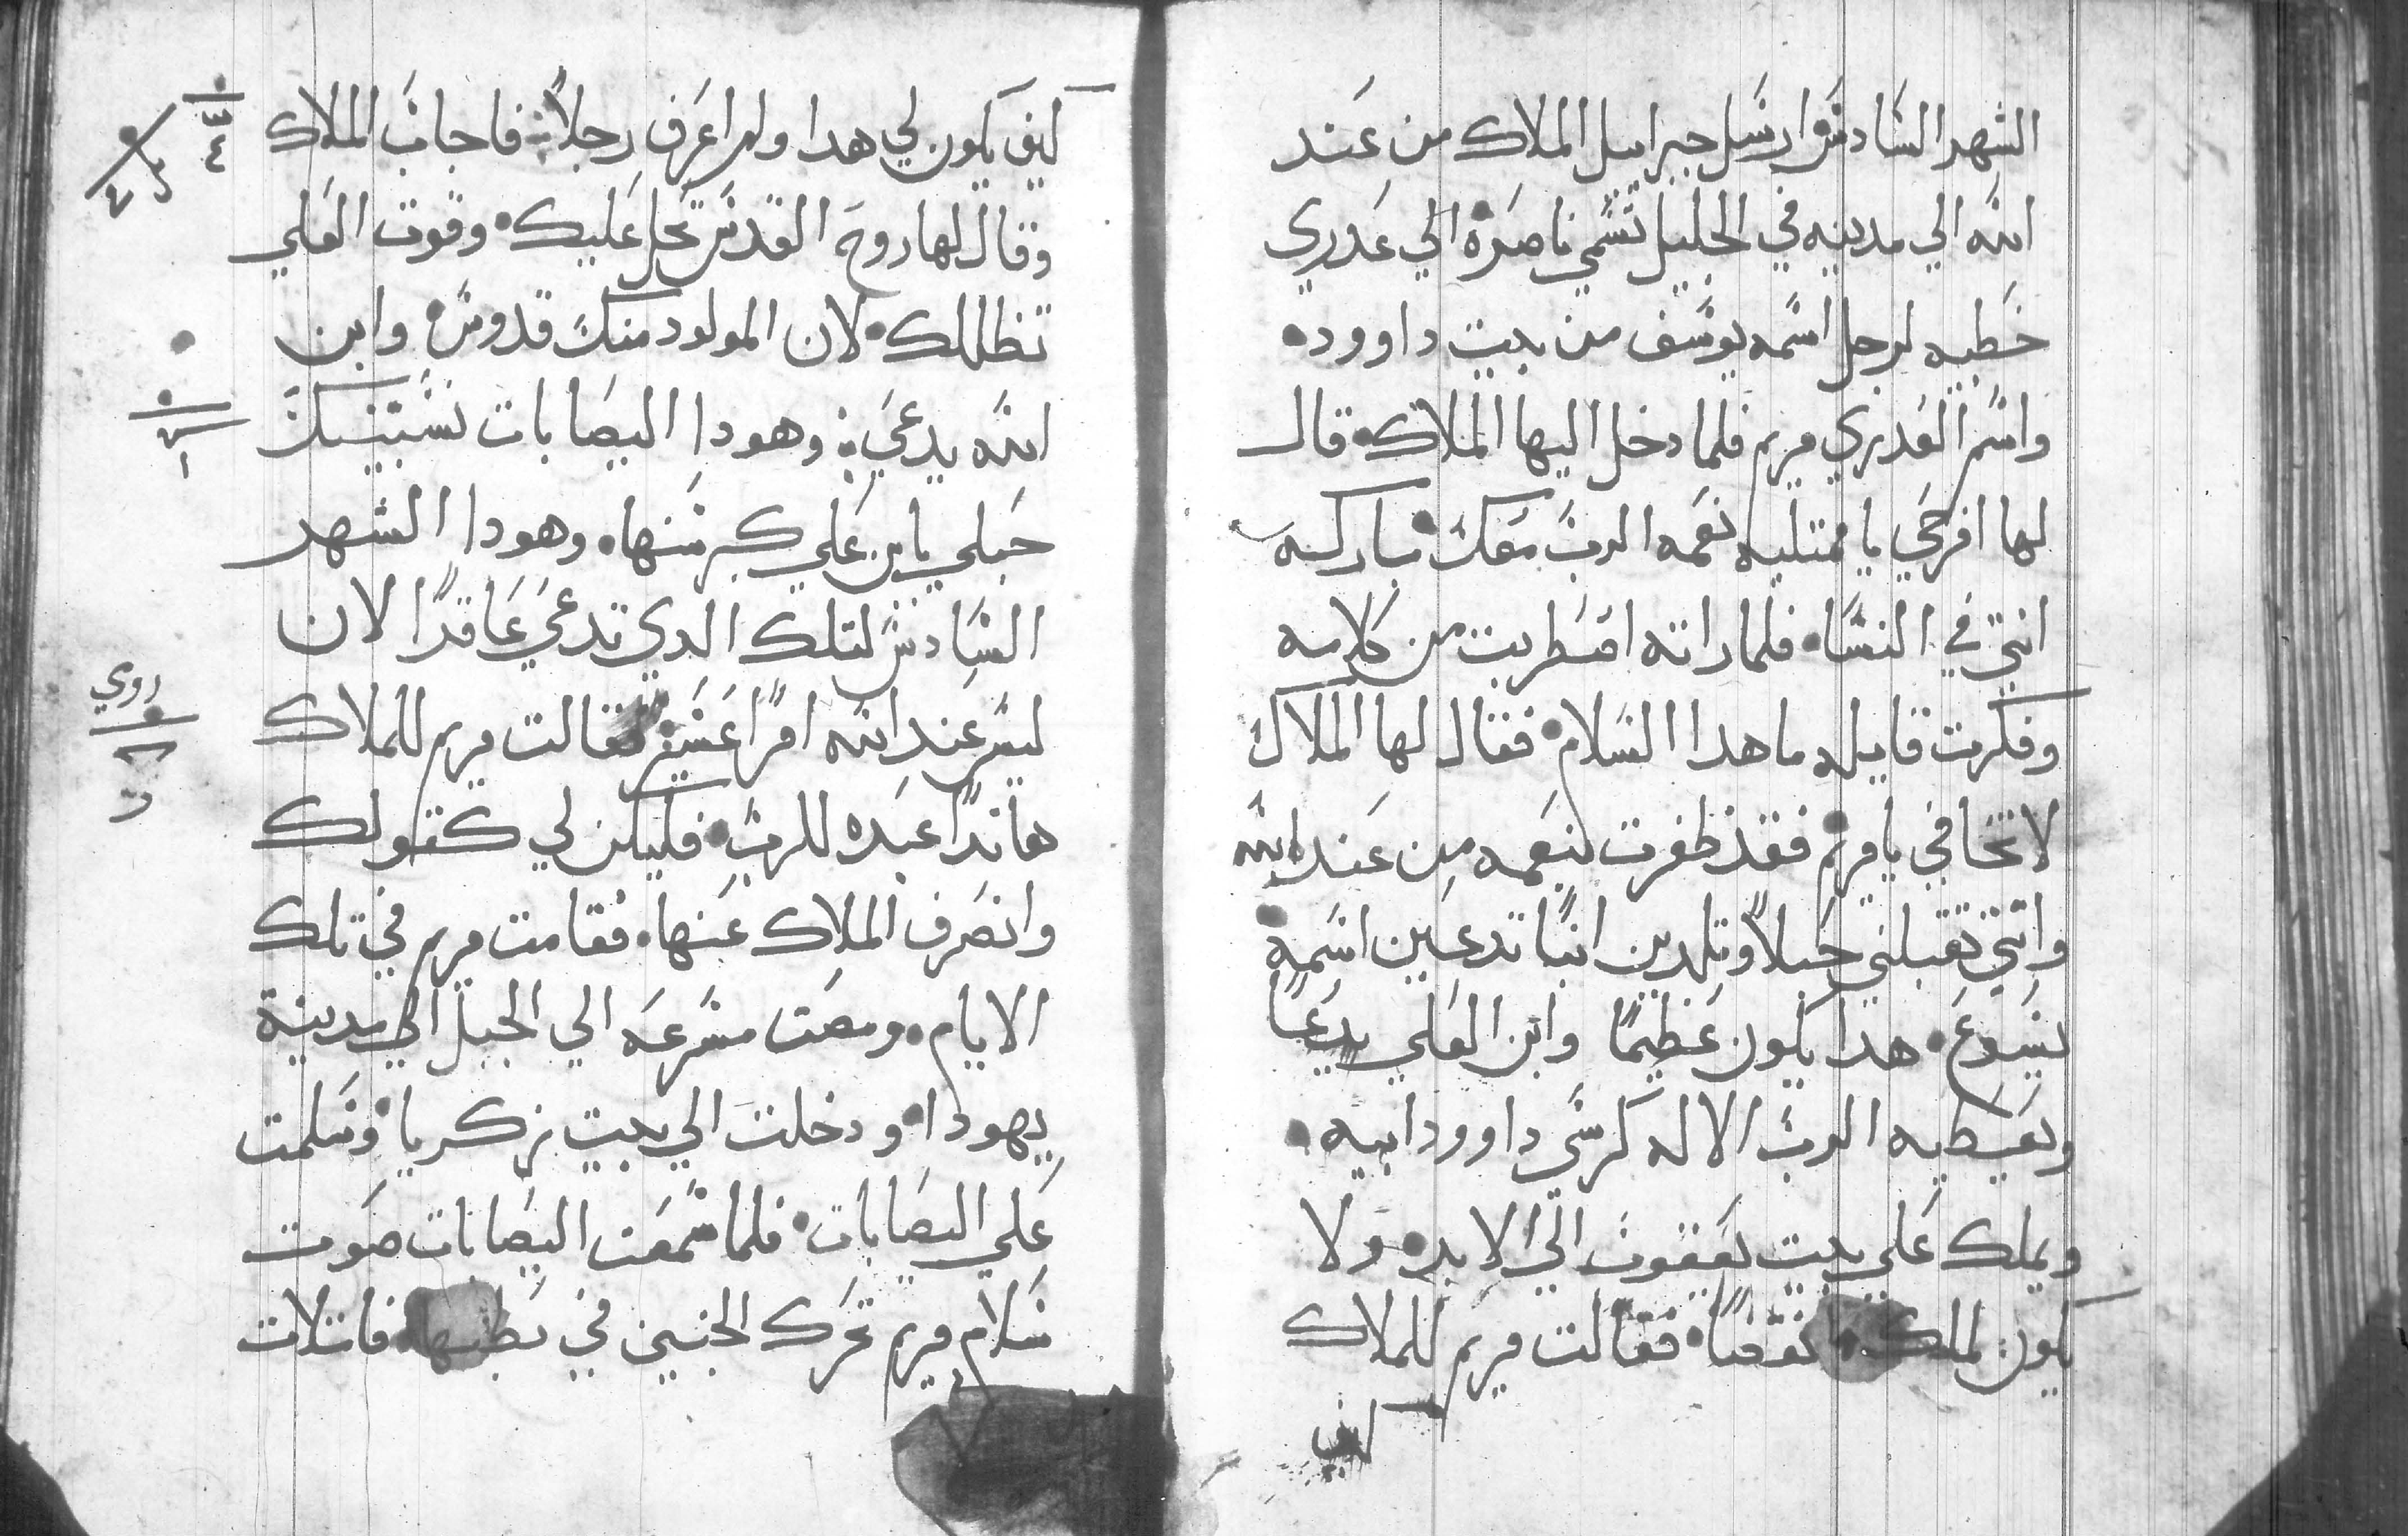 الشهر السادس ارسل جبراييل الملاك من عند
الله الي مدينه في الجليل تسمي ناصره الي عدري
خطيبه لرجل اسمه يوسف من بيت داوود
واسم العدري مريم فلما دخل اليها الملاك قال
لها افرحي يا ممتليه نعمه الرب معك مباركه
انتي في النسا فلما راته اضطربت من كلامه
وفكرت قايله ما هدا السلام فقال لها الملاك
لا تخافي يا مريم فقد ظفرت بنعمه من عند الله
وانتي تقبلي حبلاً وتلدين ابناً تدعين اسمه
يسوع هدا يكون عظيماً وابن العلي يدعا
ويعطيه الرب الاله كرسي داوود ابيه
ويملك علي بيت يعقوب الي الابد ولا
يكون لملكه نقضاً فقالت مريم للملاك
كيف
كيف يكون لي هدا ولم اعرف رجلاً فاجاب الملاك
وقال لها روح القدس تحل عليك وقوت العلي
تظللك لان المولود منك قدوس وابن
الله يدعي وهودا اليصابات نسيبتك
حبلي بابن علي كبر سنها وهودا الشهر
السادس لتلك الدي تدعي عاقراً لان
ليس عند الله امراً عسير فقالت مريم للملاك
هانداً عبده للرب فليكن لي كقولك
وانصرف الملاك عنها فقامت مريم في تلك
الايام ومضت مسرعه الي الجبل الي مدينة
يهودا ودخلت الي بيت زكريا وسلمت
علي اليصابات فلما سمعت اليصابات صوت
سلام مريم تحرك الجنين في بطنها فامتلات